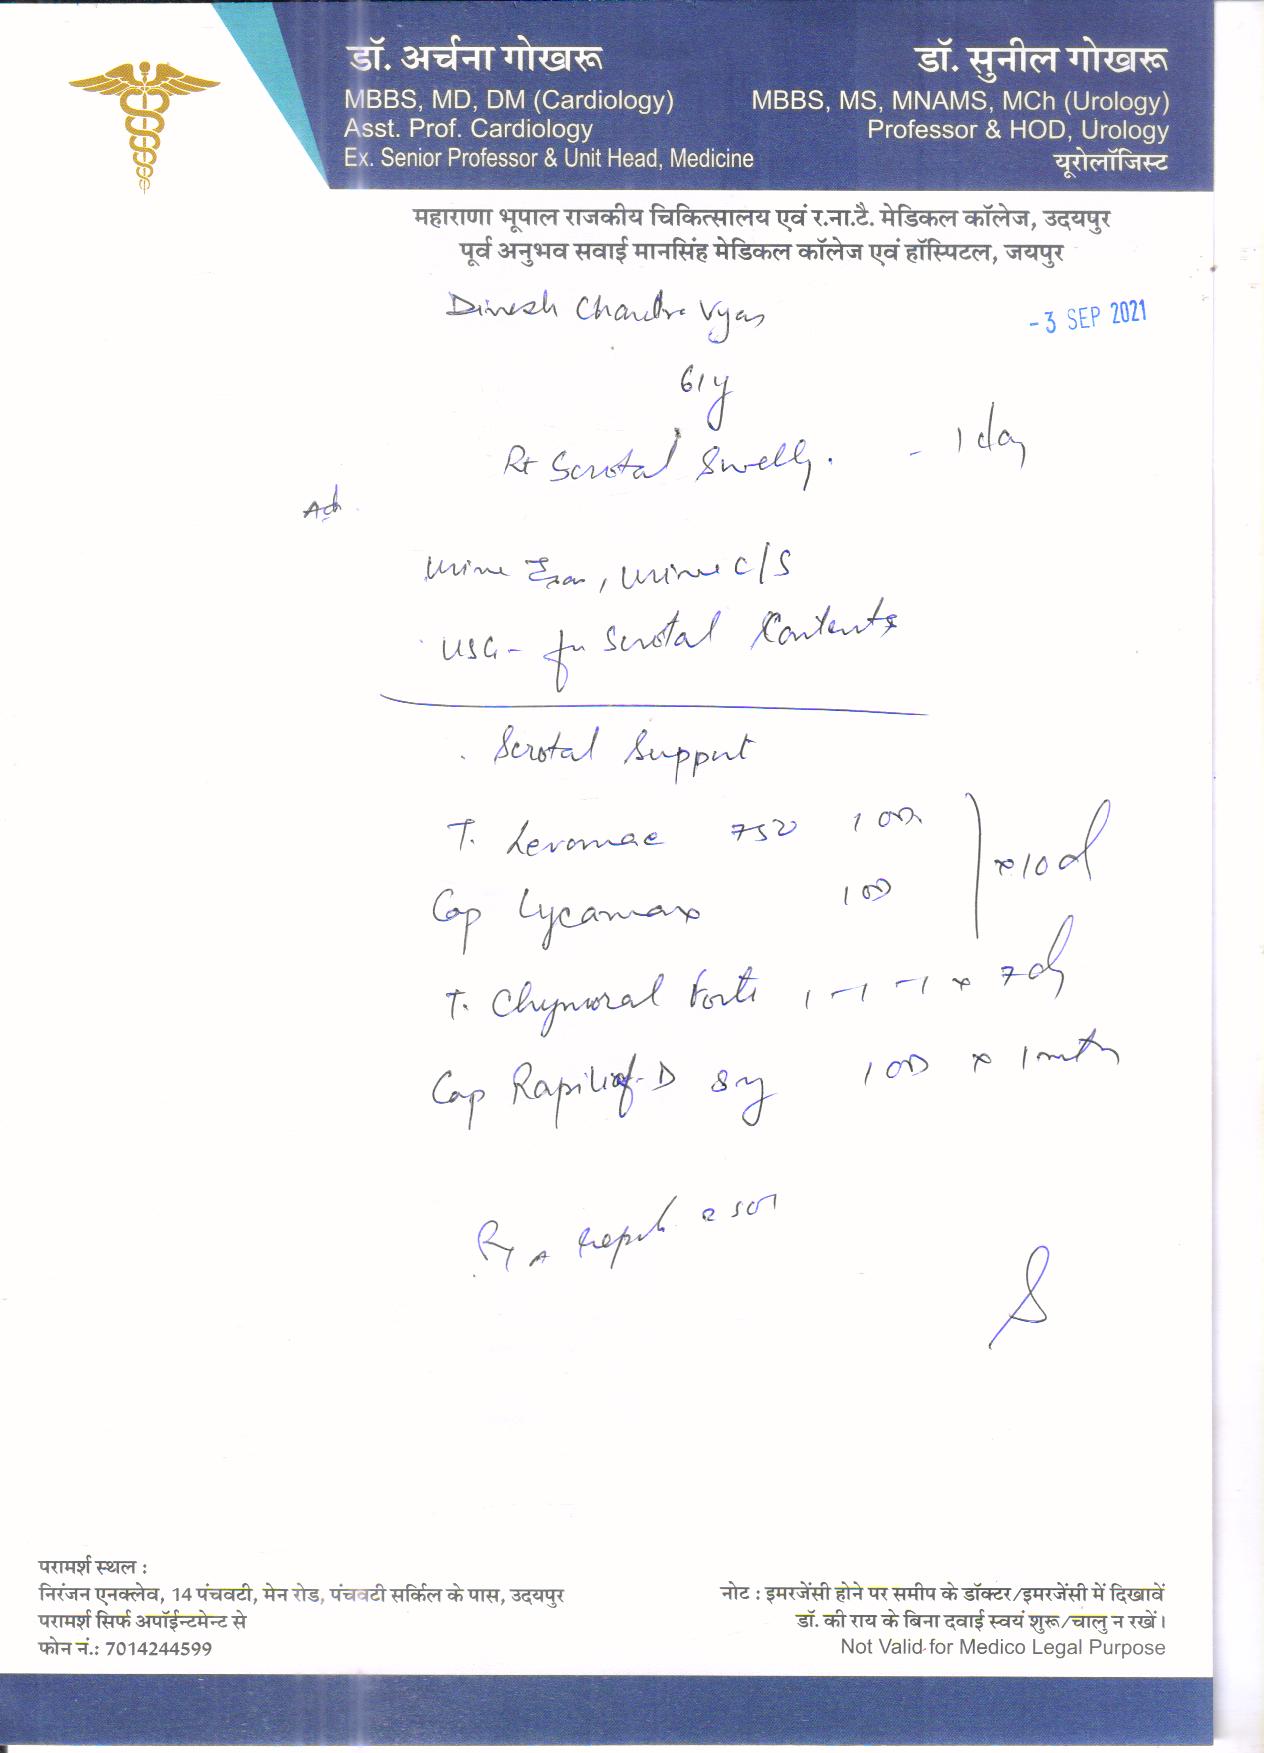 डॉ. अर्चना गोखरू
MBBS, MD, DM (Cardiology)
Asst. Prof. Cardiology
Ex. Senior Professor & Unit Head, Medicine
डॉ. सुनील गोखरू
MBBS, MS, MNAMS, MCh (Urology)
Professor & HOD, Urology
यूरोलॉजिस्ट
महाराणा भूपाल राजकीय चिकित्सालय एवं र.ना.टै. मेडिकल कॉलेज, उदयपुर
पूर्व अनुभव सवाई मानसिंह मेडिकल कॉलेज एवं हॉस्पिटल, जयपुर
Dinesh Chandra Vyas
-3 SEP 2021
61y
Rt Scrotal Swelling. - 1 day
Adv
Urine Exam, Urine C/S
USG - for Scrotal Contents
Scrotal Support
T. Levomac 750 1 OD
Cap Lycamax 1 OD
x 10 d
T. Chymoral Forte 1-1-1 x 7 d
Cap Rapilif-D 8mg 1 OD x 1 mth
R/A reports SOS
परामर्श स्थल :
निरंजन एनक्लेव, 14 पंचवटी, मेन रोड, पंचवटी सर्किल के पास, उदयपुर
परामर्श सिर्फ अपॉईन्टमेन्ट से
फोन नं.: 7014244599
नोट : इमरजेंसी होने पर समीप के डॉक्टर/इमरजेंसी में दिखावें
डॉ. की राय के बिना दवाई स्वयं शुरू/चालु न रखें।
Not Valid for Medico Legal Purpose